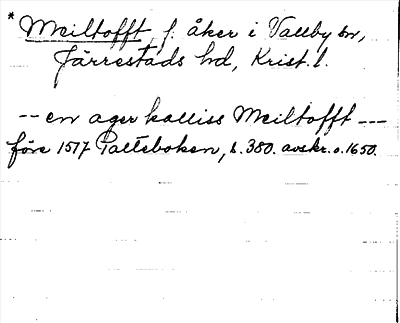 * Meiltofft, f. åker i Vallby sn,
Järrestads hd, Krist. l.
-- en ager kalliss Meiltofft ---
före 1517 Palteboken, s. 380. avskr. o. 1650.